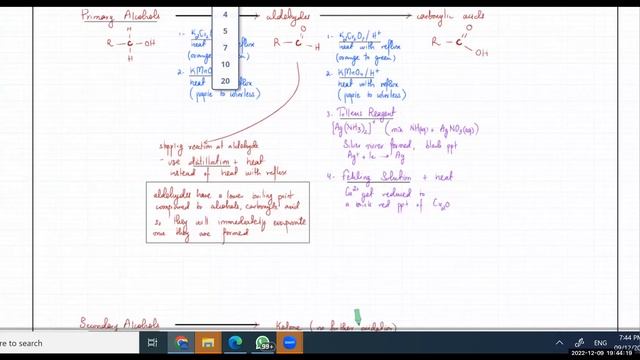 Primary Alcohols → aldehydes → carboxylic acids
H
R C OH
H
O
R C H
O
R C OH
4
5
7
10
20
1. K2Cr2O7
heat reflux
(orange to green)
2. KMnO4
heat reflux
(purple to colourless)
1. K2Cr2O7 / H+
heat with reflux
(orange to green)
2. KMnO4 / H+
heat with reflux
(purple to colourless)
3. Tollens Reagent
[Ag(NH3)2]+ (mix NH3(aq) + AgNO3(aq))
Silver mirror formed, black ppt
Ag+ + 1e → Ag
4. Fehling Solution + heat
Cu2+ get reduced to
a brick red ppt of Cu2O
stopping reaction at aldehyde
- use distillation + heat
instead of heat with reflux
aldehydes have a lower boiling point
compared to alcohols, carboxylic acid
so they will immediately evaporate
once they are formed
Secondary Alcohols → Ketone (no further oxidation)
re to search
99+
7:44 PM
09/12/20
2022-12-09 19:44:16